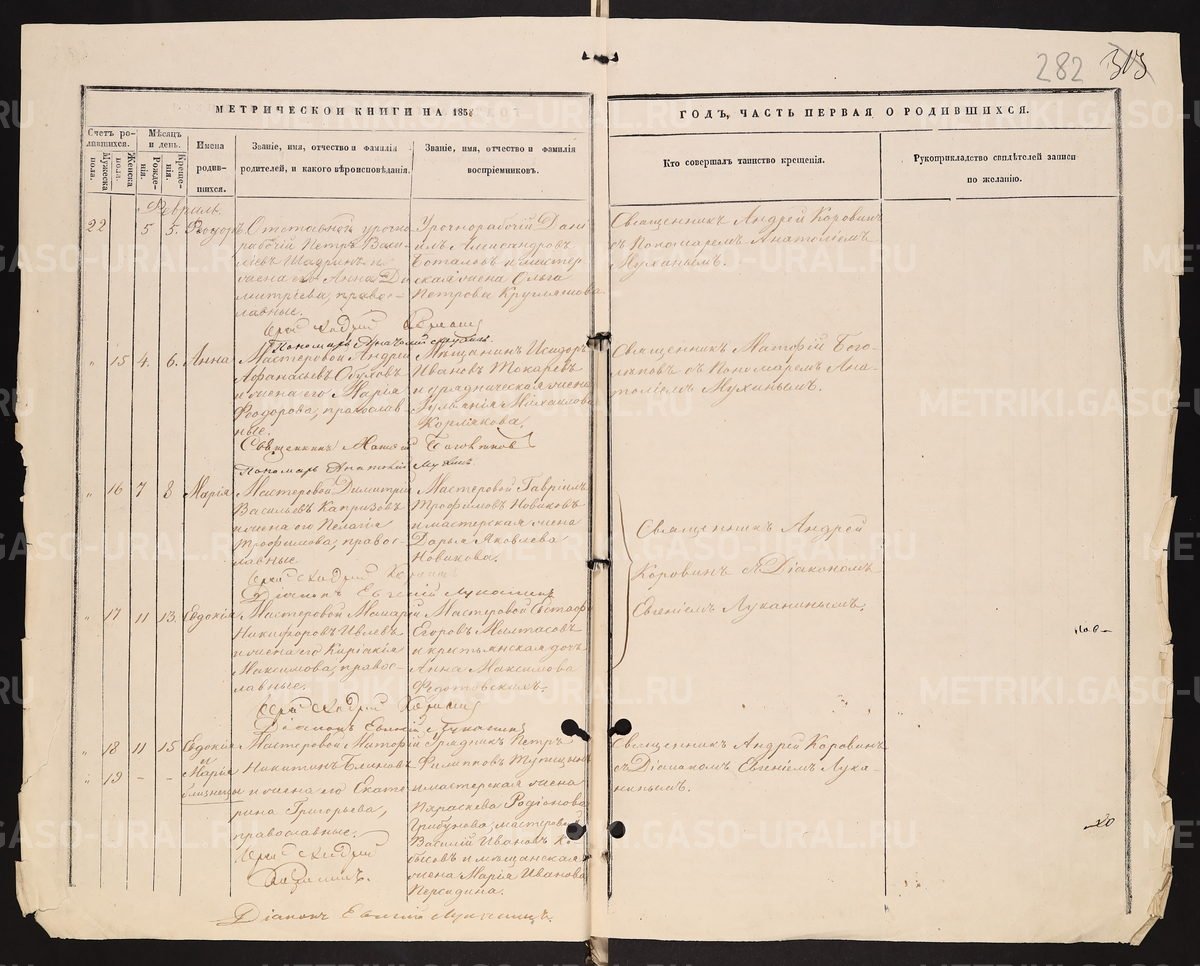 282 313
МЕТРИЧЕСКОЙ КНИГИ НА 1858
ГОДЪ, ЧАСТЬ ПЕРВАЯ О РОДИВШИХСЯ.
Счетъ ро-
дившихся.
Мужеска
пола.
Женска
пола.
Мѣсяцъ
и день.
Рожде-
нія.
Креще-
нія.
Имена
родив-
шихся.
Званіе, имя, отчество и фамилія
родителей, и какого вѣроисповѣданія.
Званіе, имя, отчество и фамилія
воспріемниковъ.
Кто совершалъ таинство крещенія.
Рукоприкладство свидѣтелей записи
по желанію.
Февраль.
22 5 5. Ѳеодоръ
Отставной урочно
рабочій Петръ Васи-
льевъ Шадринъ и
жена его Анна Ди
митріева, правос-
лавные.
Урочнорабочій Дані
илъ Александровъ
и мастер
ская жена Ольга
Петрова Кругляшова
Священникъ Андрей Коровинъ
съ Пономаремъ Анатоліемъ
Мухинымъ.
„ 15 4. 6. Анна
Мастеровой Андрей
Аѳанасьевъ Обуховъ
и жена его Марія
Ѳеодорова, православ-
ные.
Мѣщанинъ Исидоръ
Ивановъ Токаревъ
и урядническая жена
Іуліанія Михаилова
Корлякова.
Священникъ Матѳій Бого-
лѣповъ съ Пономаремъ Ана-
толіемъ Мухинымъ.
Священникъ Матѳій Боголѣповъ
Пономарь Анатолій Мухинъ.
„ 16 7 8 Марія
Мастеровой Димитрій
Васильевъ Капризовъ
и жена его Пелагія
Трофимова, правос-
лавные.
Мастеровой Гавріилъ
Трофимовъ Новиковъ
и мастерская жена
Дарья Яковлева
Новикова.
Священникъ Андрей
Коровинъ съ Діакономъ
Евгеніемъ Луканинымъ.
Діаконъ Евгеній Луканинъ
„ 17 11 13. Евдокія
Мастеровой
Никифоровъ Ивлевъ
и жена его Киріакія
Максимова, правос-
лавные.
Мастеровой Евстаф
Егоровъ
и крестьянская дочь
Анна Максимова
Федотовскихъ.
Діаконъ Евгеній Луканинъ
„ 18 11 15 Евдокія
и
„ 19 - - Марія
близнецы
Мастеровой Матѳій
Никитинъ Блиновъ
и жена его Екате-
рина Григорьева,
православные.
Урядникъ Петръ
Филипповъ Тупицынъ
и мастерская жена
Параскева Родіонова
Грибунова, мастеровой
Василій Ивановъ Ко
и мѣщанская
жена Марія Иванова
Персидина.
Священникъ Андрей Коровинъ
съ Діакономъ Евгеніемъ Лука-
нинымъ.
Діаконъ Евгеній Луканинъ.
METRIKI.GASO-URAL.RU